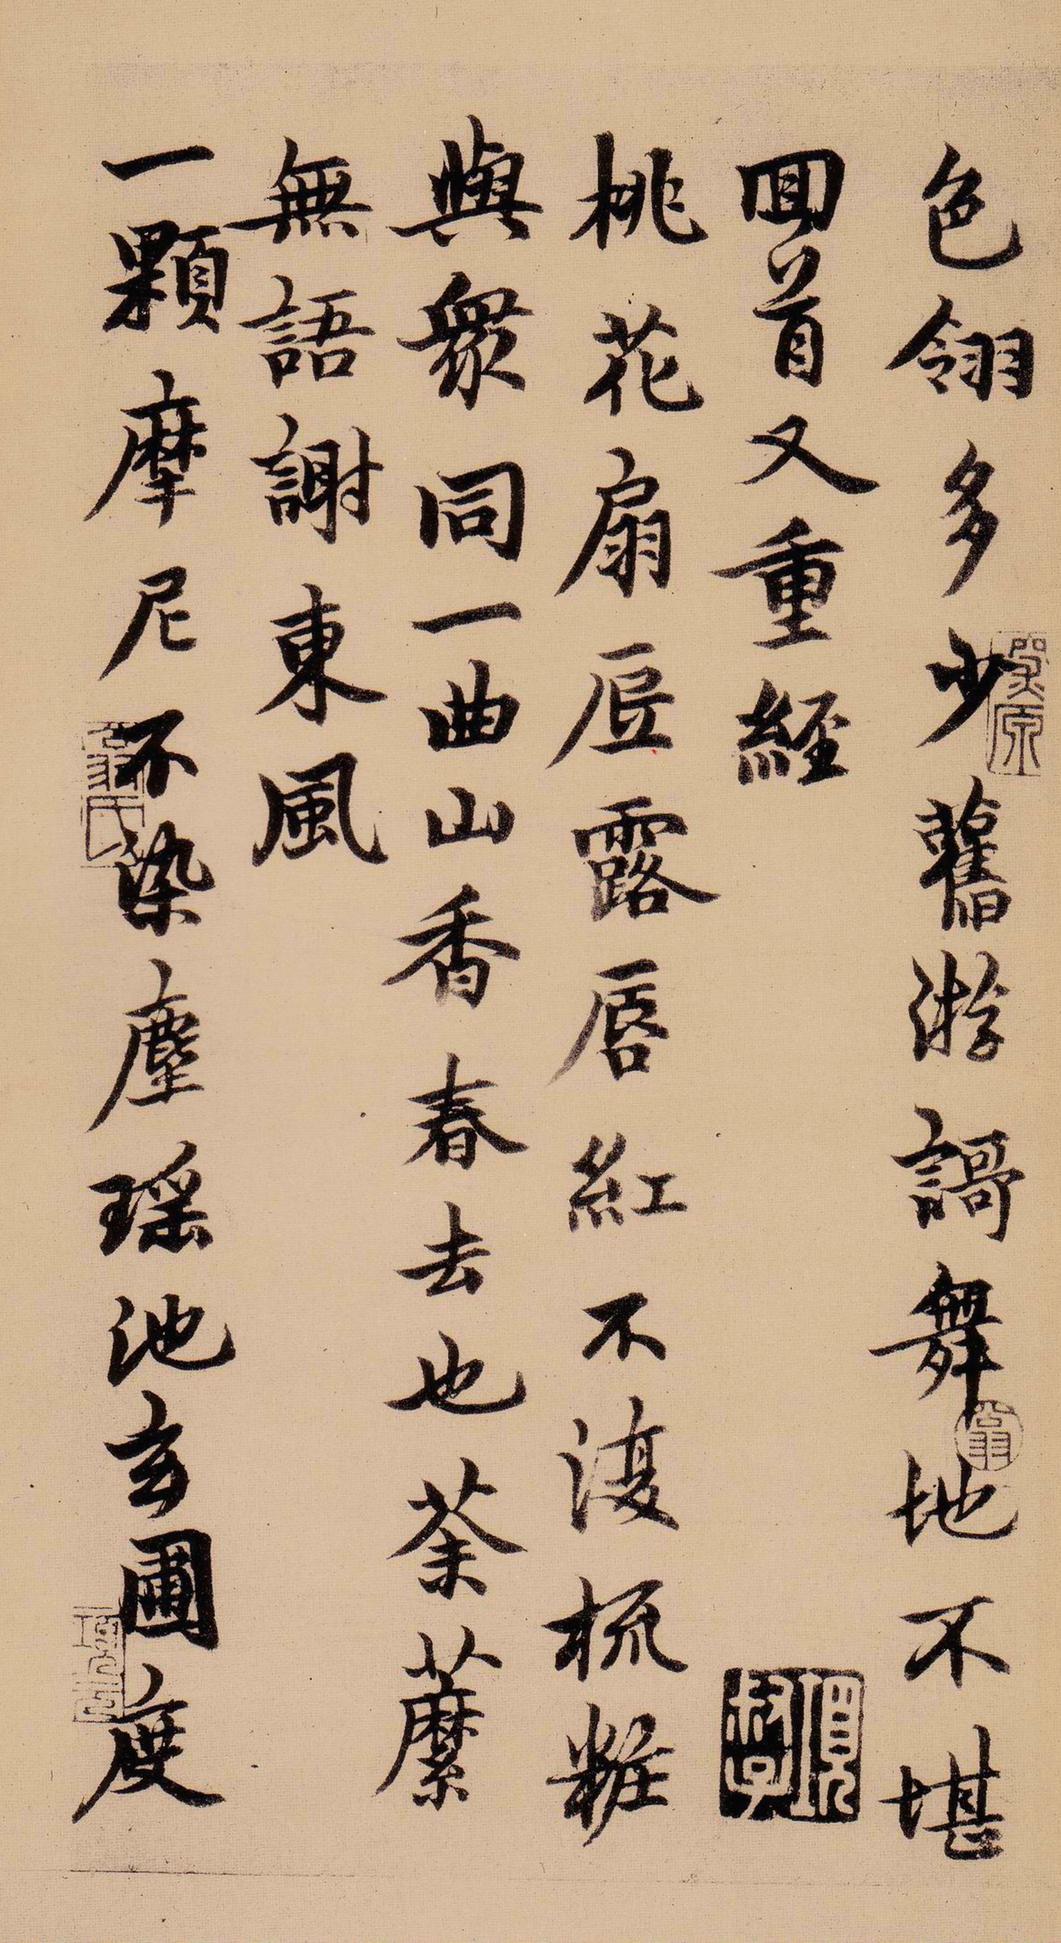 色翎多少舊游謌舞地不堪
回首又重經
桃花扇底露唇紅不復梳粧
與衆同一曲山香春去也荼蘼
無語謝東風
一顆摩尼不染塵瑶池玄圃度